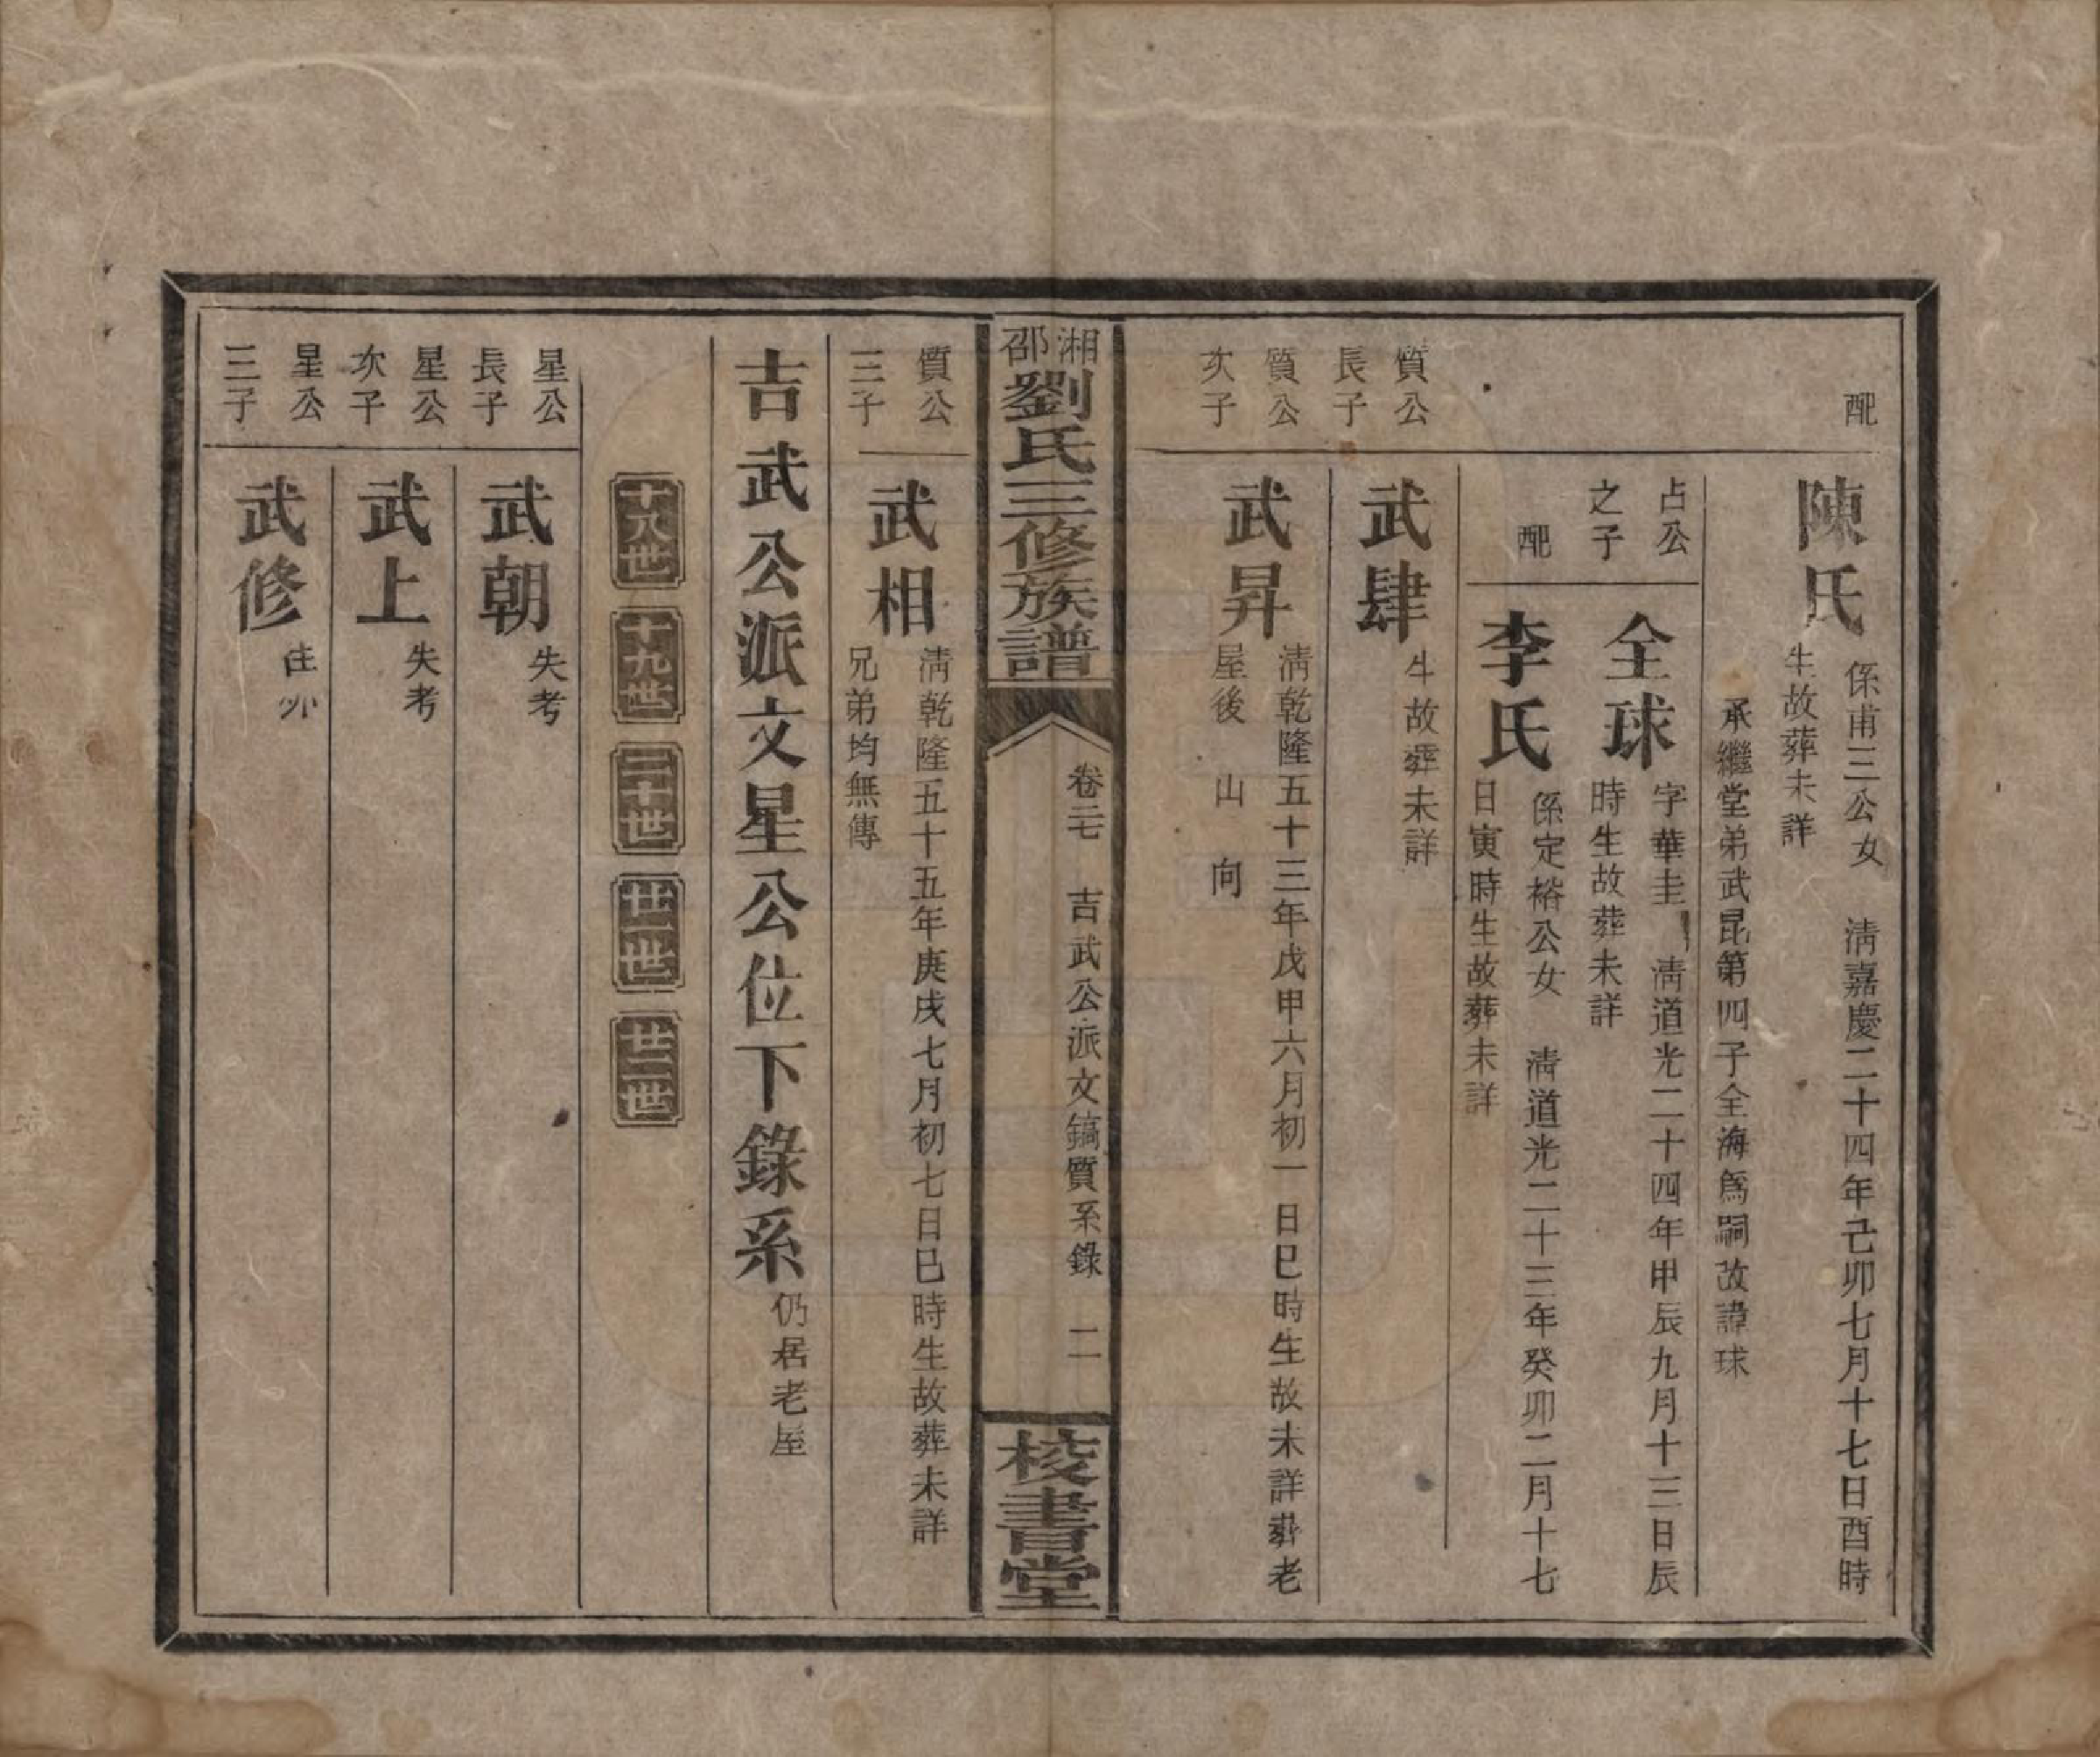 配
陳氏
係甫三公女　淸嘉慶二十四年己卯七月十七日酉時
生故葬未詳
承繼堂弟武昆第四子全海爲嗣故諱球
占公
之子
全球
字華圭　淸道光二十四年甲辰九月十三日辰
時生故葬未詳
配
李氏
係定裕公女　淸道光二十三年癸卯二月十七
日寅時生故葬未詳
質公
長子
武肆
生故葬未詳
質公
次子
武昇
淸乾隆五十三年戊申六月初一日巳時生故未詳葬老
屋後　山　向
湘邵劉氏三修族譜
卷二七　吉武公派文鎬質系錄　二
校書堂
質公
三子
武相
淸乾隆五十五年庚戌七月初七日巳時生故葬未詳
兄弟均無傳
吉武公派文星公位下錄系仍居老屋
十八世　十九世　二十世　廿一世　廿二世
星公
長子
武朝
失考
星公
次子
武上
失考
星公
三子
武修
往外